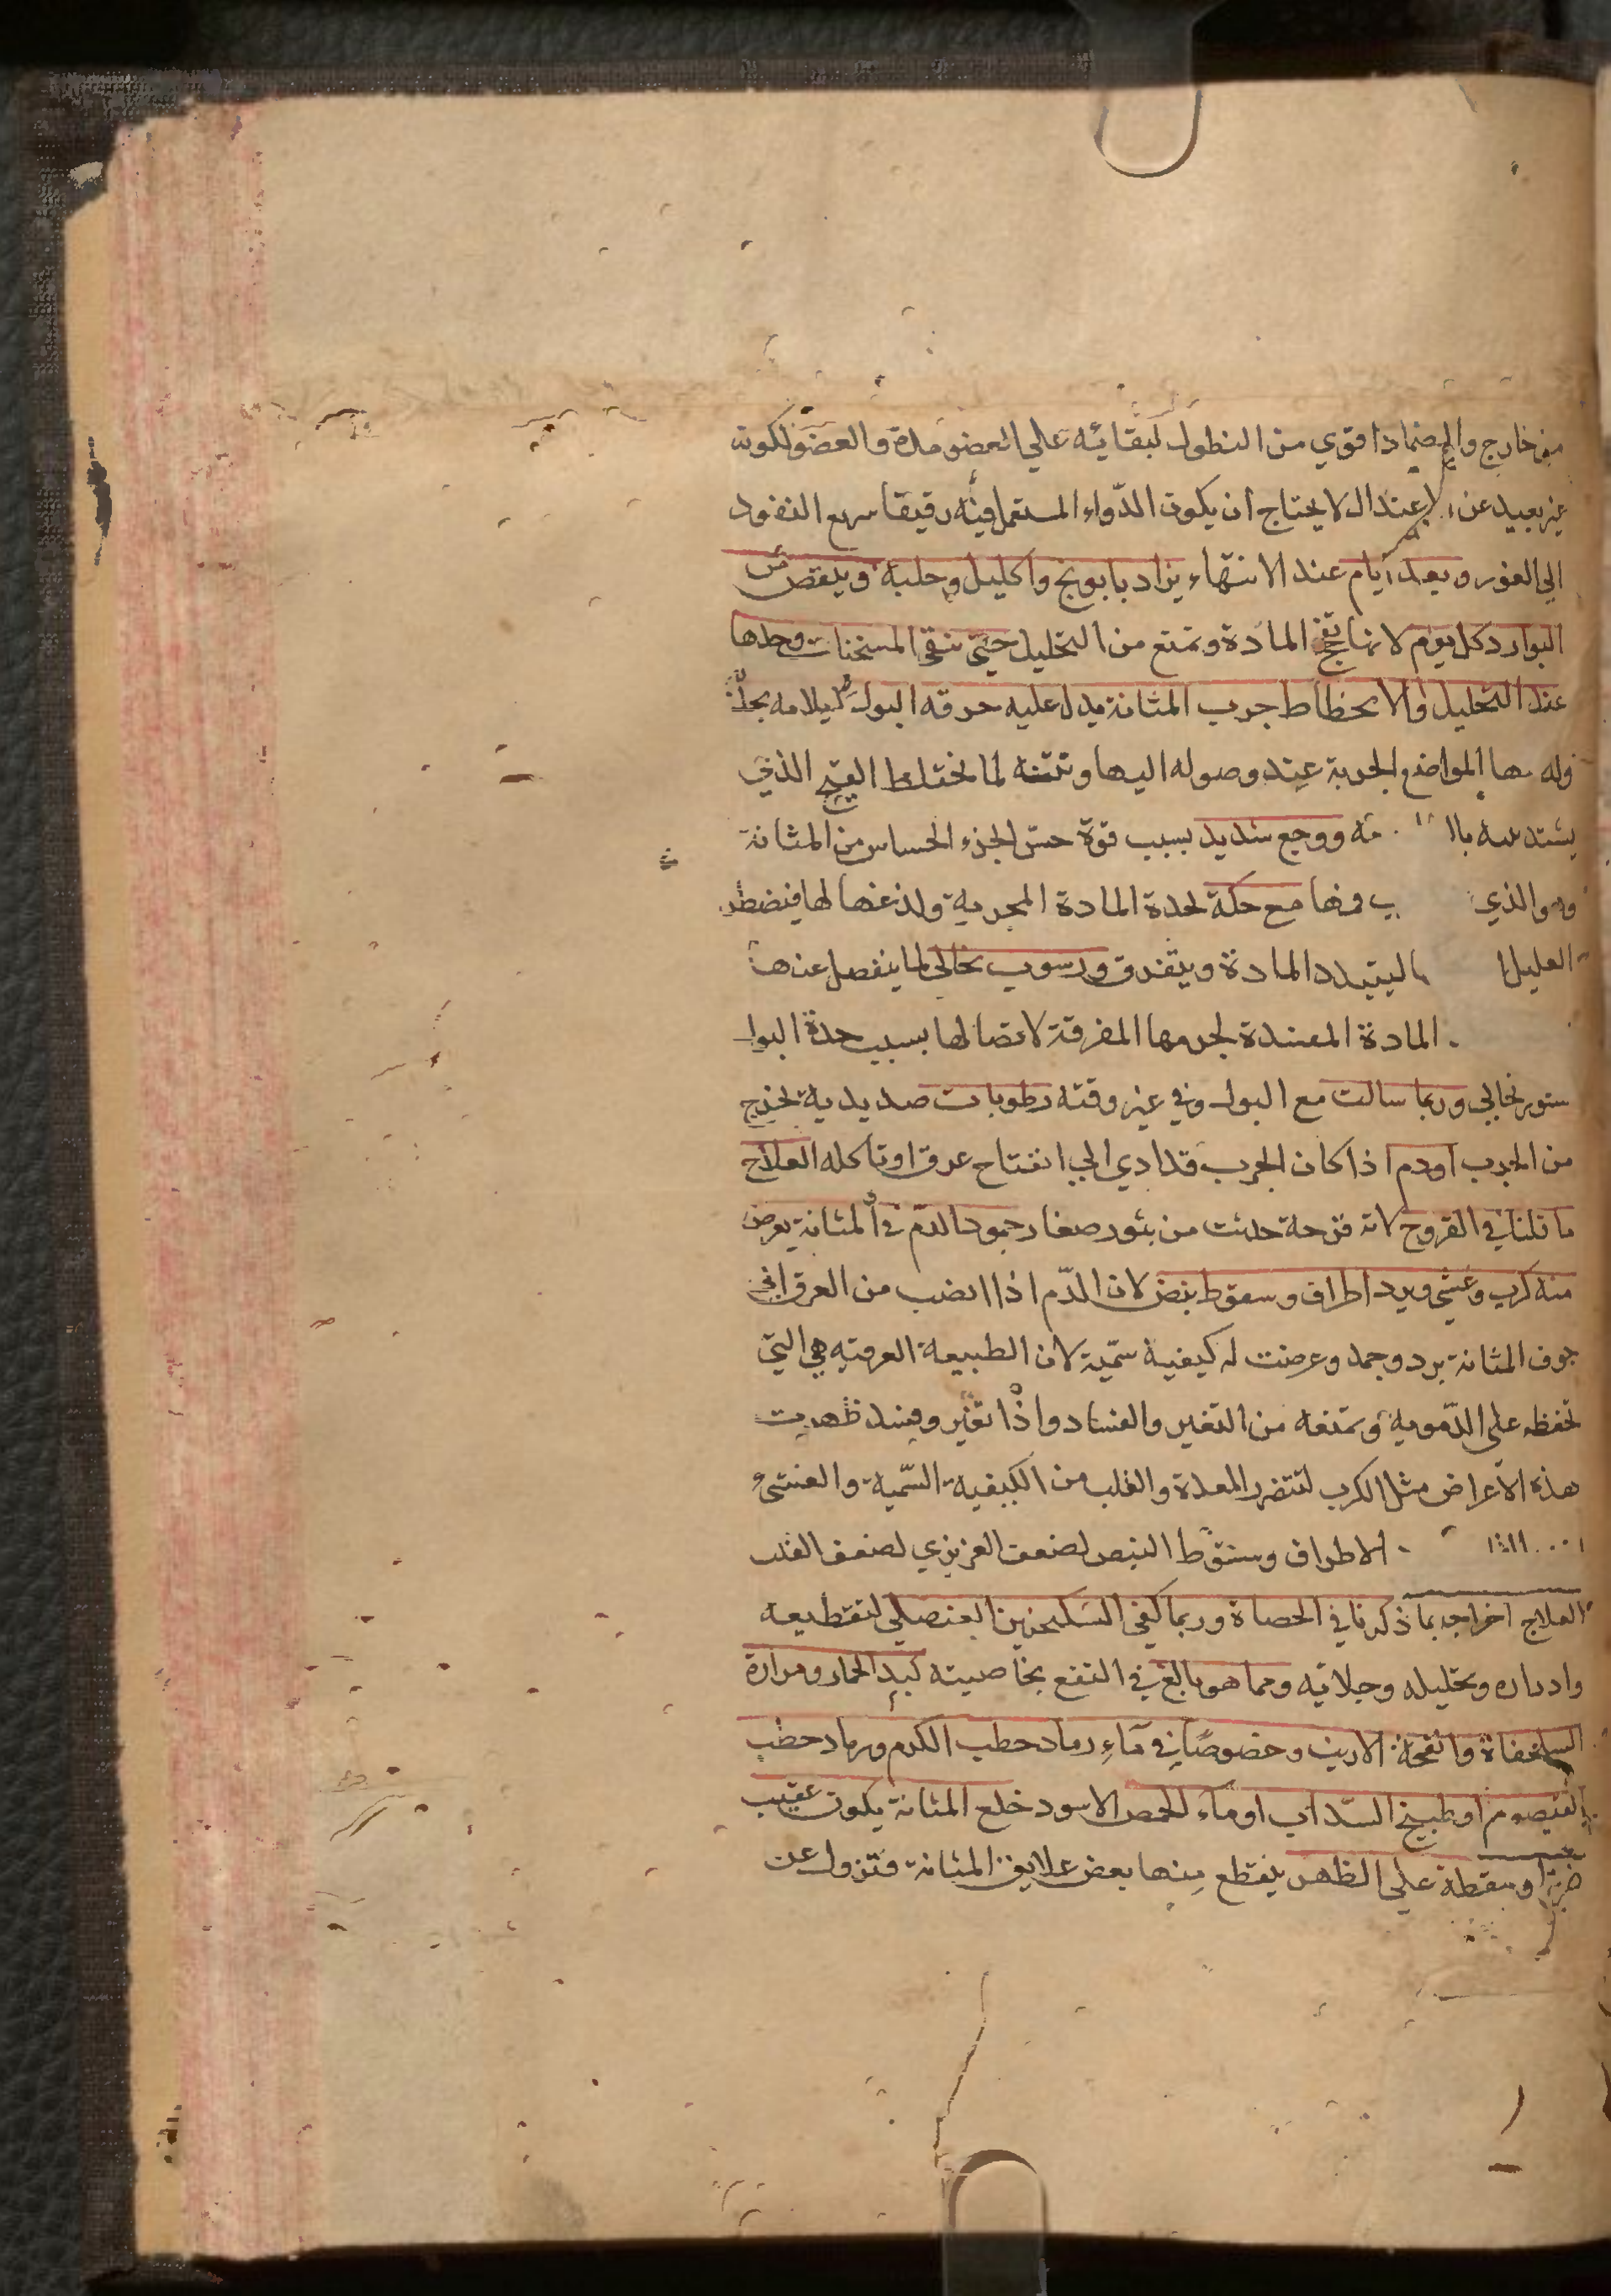 من خارج والضماد اقوي من النطول لبقائه علي العضو مدة والعضو لكونه
غير بعيد عن الاعتدال لا يحتاج ان يكون الدواء المستعمل فيه رقيقا سريع النفود
الي الغور وبعد ايام عند الانتهاء يزاد بابونج واكليل وحلبة وينقص من
البوارد كل يوم لانها تفجج المادة وتمنع من التحليل حتي تبقي المسخنات وحدها
عند التحليل والانحطاط جرب المثانة يدل عليه حرقه البول لايلامه بحدته
المواضع الجربة عند وصوله اليها ونتنه لما يختلط القيح الذي
يشتد ووجع شديد بسبب قوة حس الجزء الحساس من المثانة
وهو الذي مع حكة لحدة المادة المجربة ولذعها لها فيضطر
العليل ليتبدد المادة ويتفرق ورسوب نخالي لما ينفصل عنها
المادة المفسدة لجرمها المفرقة لاتصالها بسبب حدة البول
نخالي وربما سالت مع البول وفي غير وقته رطوبات صديدية تخرج
من الجرب او دم اذا كان الجرب قد ادي الي انفتاح عرق او تاكله العلاج
ما قلنا في القروح لانه قرحة حدثت من بثور صغار جمود الدم في المثانة يعرض
منه كرب وغشي وبرد اطراف وسقوط نبض لان الدم اذا انصب من العرق الي
جوف المثانة برد وجمد وعرضت له كيفية سمية لان الطبيعة العرقيه هي التي
تحفظه علي الدموية وتمنعه من التغير والفساد واذا تغير وفسد ظهرت
هذه الاعراض مثل الكرب لتتضرر المعدة والقلب من الكيفية السمية والغشي
الاطراف وسقوط النبض لضعف الغريزي لضعف القلب
العلاج اخراجه بما ذكرنا في الحصاة وربما كفي السكنجبين العنصلي لتقطيعه
وادراره وتحليله وجلائه ومما هو بالغ في النفع بخاصيته كبد الحمار ومرارة
السلحفاة وانفحة الارنب وخصوصا في ماء رماد حطب الكرم ورماد حطب
القيصوم او طبيخ السداب او ماء الحمص الاسود خلع المثانة يكون عقيب
ضربة او سقطة علي الظهر ينقطع منها بعض علايق المثانة فتزول عن